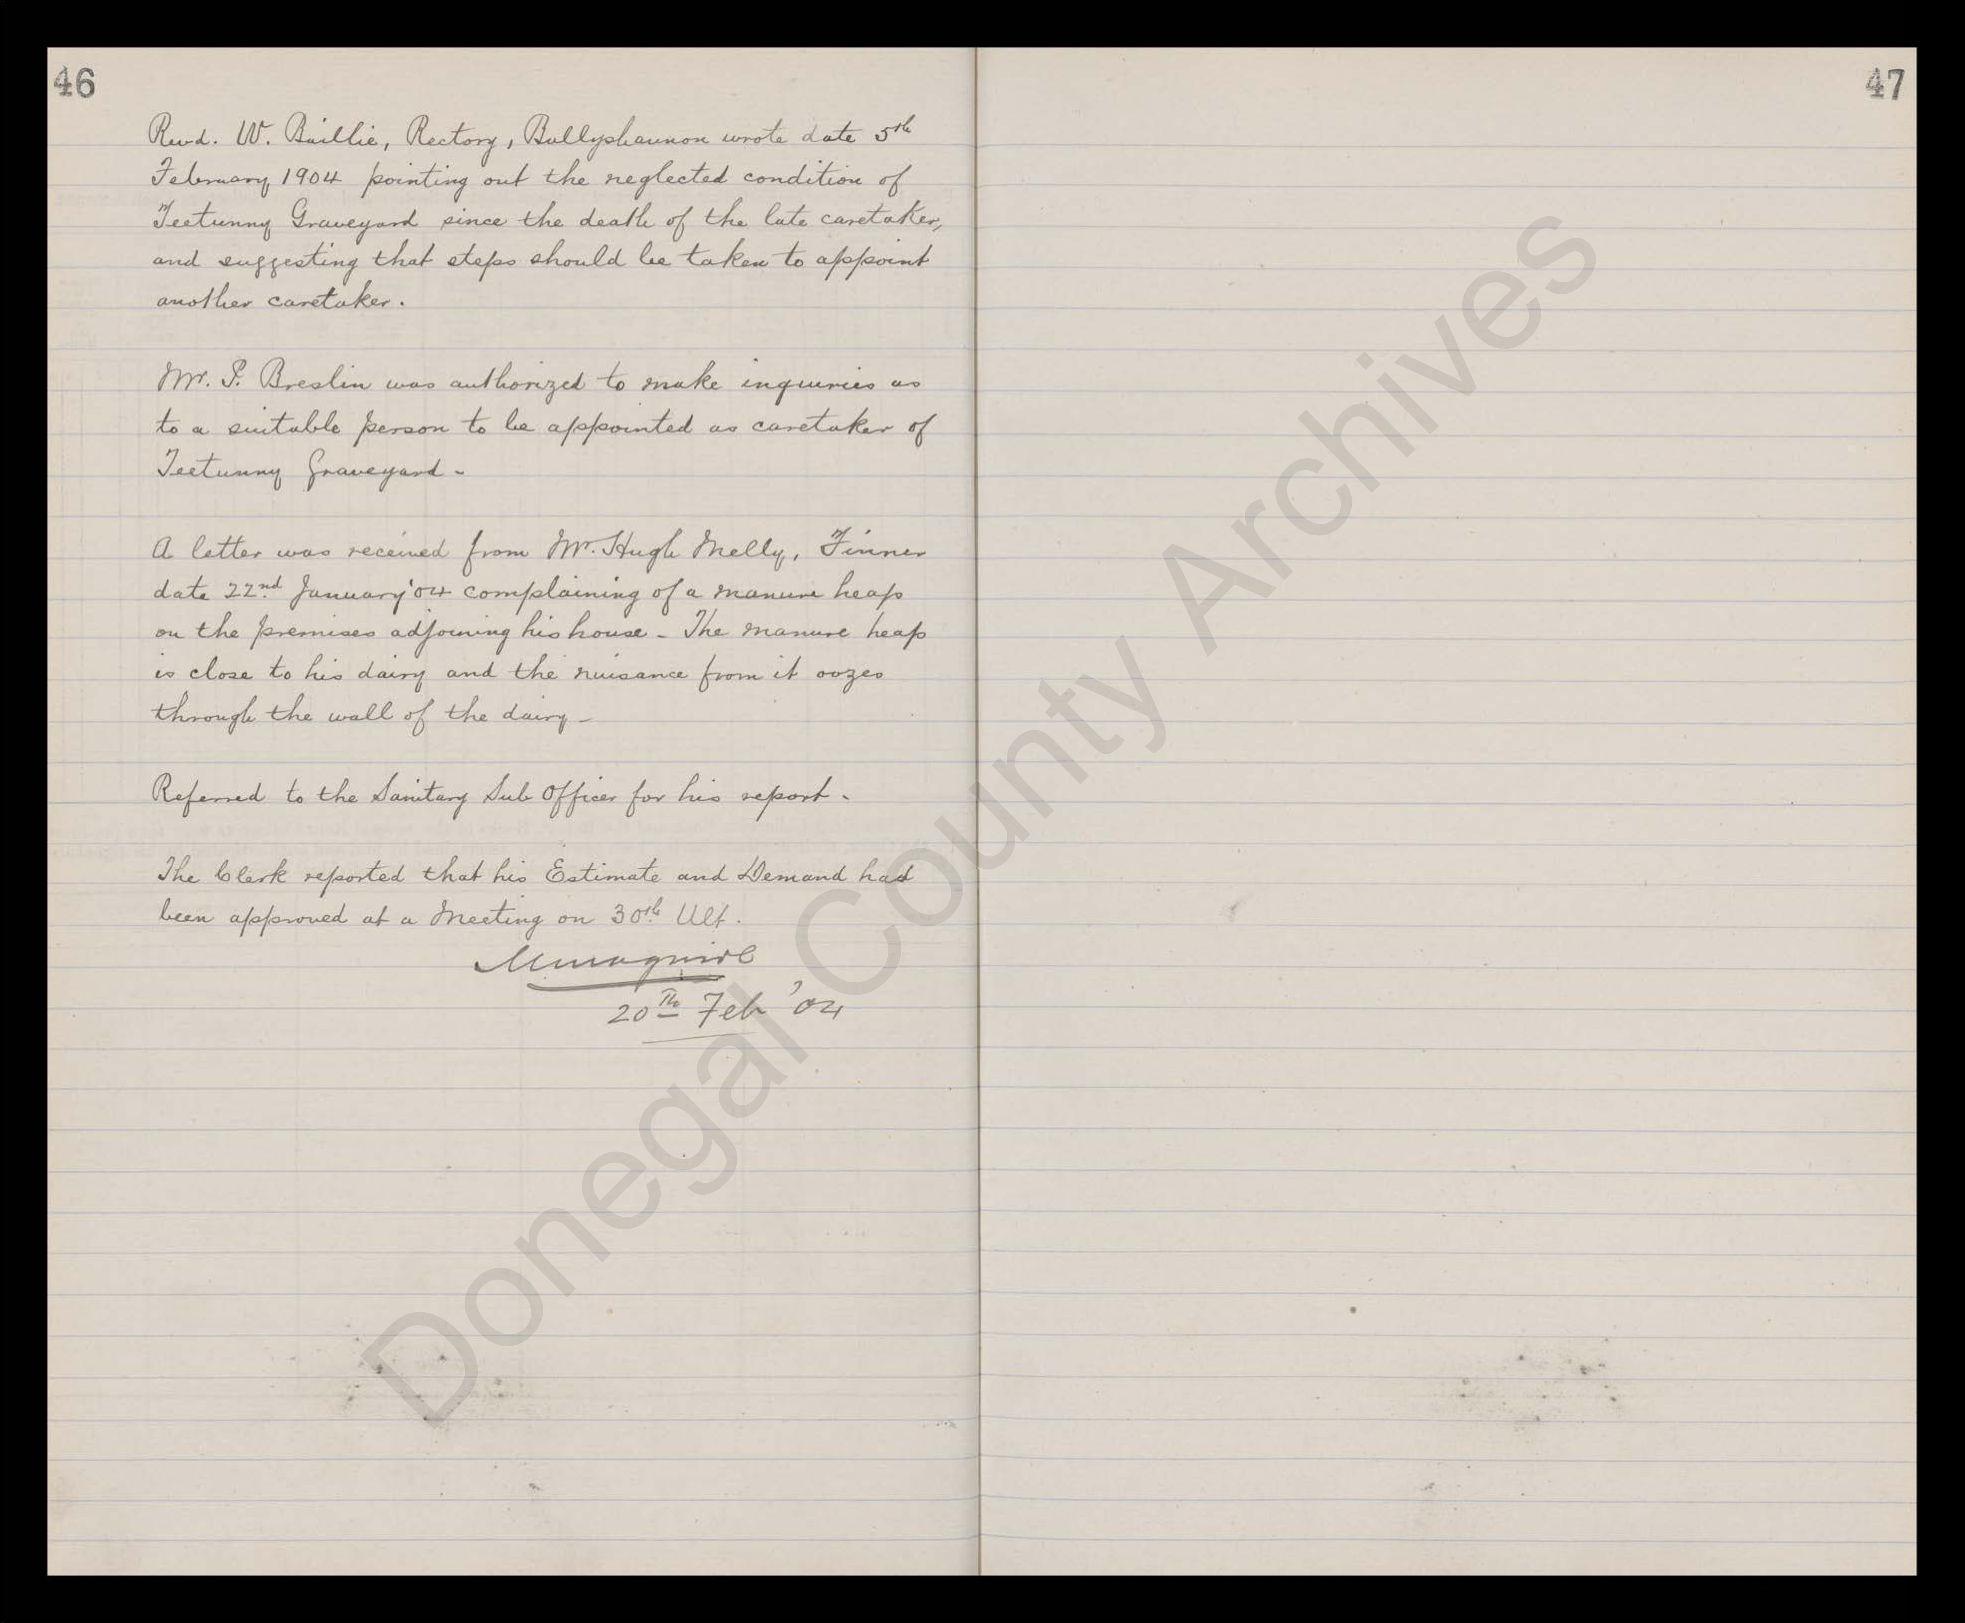 46
Revd. W. Baillie, Rectory, Ballyshannon wrote date 5th
February 1904 pointing out the neglected condition of
Teetunny Graveyard since the death of the late caretaker,
and suggesting that steps should be taken to appoint
another caretaker.
Mr. P. Breslin was authorized to make inquiries as
to a suitable person to be appointed as caretaker of
Teetunny Graveyard -
A letter was received from Mr. Hugh Melly, Finner
date 22nd January '04 complaining of a manure heap
on the premises adjoining his house - The manure heap
is close to his dairy and the nuisance from it oozes
through the wall of the dairy -
Referred to the Sanitary Sub Officer for his report -
The Clerk reported that his Estimate and Demand had
been approved at a Meeting on 30th Ult.
20th Feb '04
47
Donegal County Archives